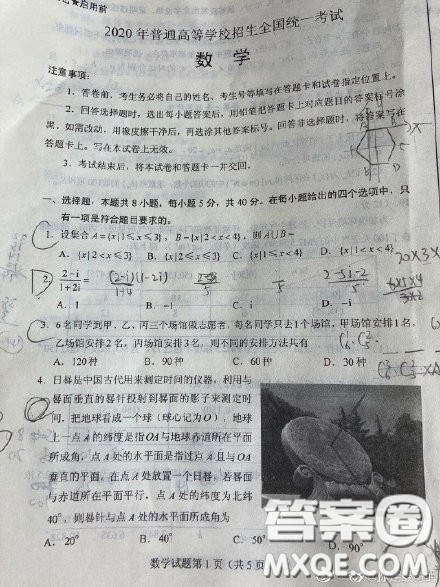 ★启用前
2020年普通高等学校招生全国统一考试
数 学
注意事项:
1.答卷前,考生务必将自己的姓名、考生号等填写在答题卡和试卷指定位置上。
2.回答选择题时,选出每小题答案后,用铅笔把答题卡上对应题目的答案标号涂
黑。如需改动,用橡皮擦干净后,再选涂其他答案标号。回答非选择题时,将答案写在
答题卡上。写在本试卷上无效。
3.考试结束后,将本试卷和答题卡一并交回。
一、选择题:本题共8小题,每小题5分,共40分。在每小题给出的四个选项中,只
有一项是符合题目要求的。
1.设集合A={x|1≤x≤3},B={x|2<x<4},则A∪B=
A.{x|2<x≤3} B.{x|2≤x≤3} C.{x|1≤x<4} D.{x|1<x<4}
2. (2-i)/(1+2i)= (2-i)(1-2i)/(1+4) 2-5i-2/5
A.1 B.-1 C.i D.-i
3.6名同学到甲、乙、丙三个场馆做志愿者,每名同学只去1个场馆,甲场馆安排1名,
乙场馆安排2名,丙场馆安排3名,则不同的安排方法共有
A.120种 B.90种 C.60种 D.30种
4.日晷是中国古代用来测定时间的仪器,利用与
晷面垂直的晷针投射到晷面的影子来测定时
间.把地球看成一个球(球心记为O),地球
上一点A的纬度是指OA与地球赤道所在平面
所成角,点A处的水平面是指过点A且与OA
垂直的平面.在点A处放置一个日晷,若晷面
与赤道所在平面平行,点A处的纬度为北纬
40°,则晷针与点A处的水平面所成角为
A.20° B.40° C.50° D.90°
数学试题第1页(共5页
答案圈
MXQE.COM